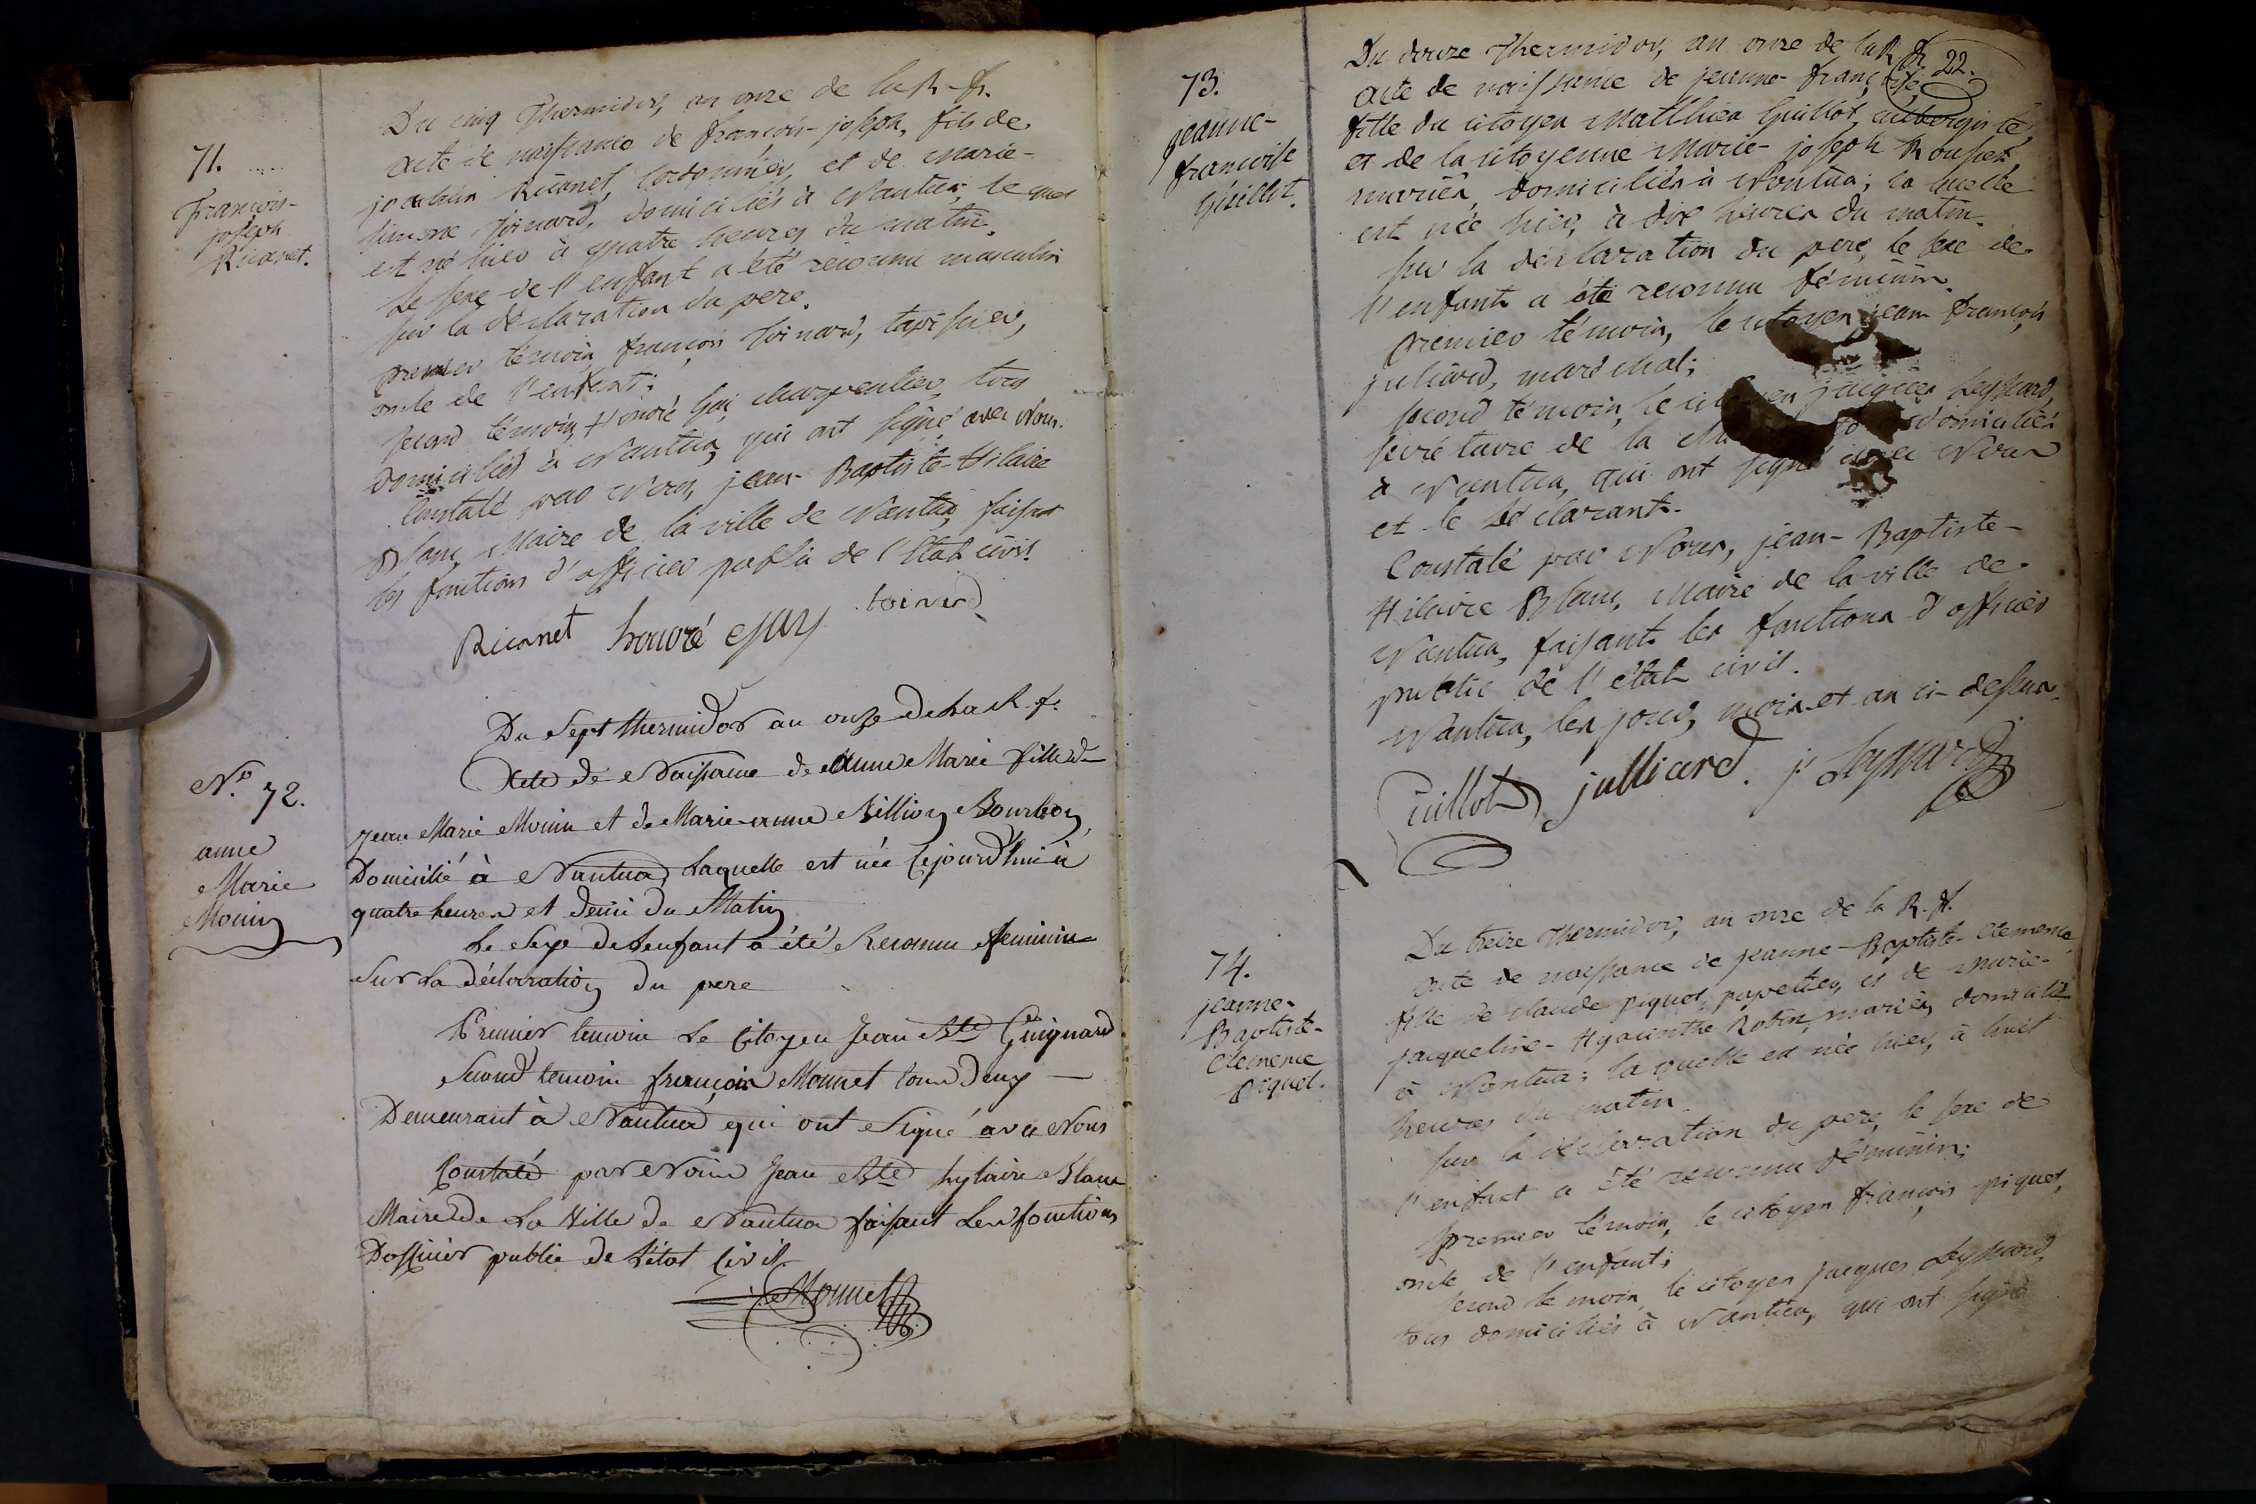 71.
François-
joseph
Ricanet.
Du cinq Thermidor, an onze de la R. fr.
acte de naissance de françois-joseph, fils de
joachim Ricanet, Cordonnier, et de Marie-
simone Toinard, domiciliés à Nantua; le quel
est né hier à quatre heures du matin.
Le sexe de l'enfant a été reconnu masculin
sur la déclaration du pere.
premier témoin, françois Toinard, tapissier,
oncle de l'enfant;
second témoin, Honoré Gai, charpentier, tous
domiciliés à Nantua, qui ont signé avec Nous.
Constaté par Nous, jean-Baptiste-Hilaire
Blanc, Maire de la ville de Nantua, faisant
les fonctions d'officier public de l'Etat civil.
Ricanet honoré toinard
N.º 72.
anne
Marie
Monin
Du Sept thermidor an onze de La R. f.
Acte de Naissance de Anne Marie fille de
Jean Marie Monin et de Marie anne Billion Bourbon,
Domicilié à Nantua, Laquelle est née Cejourd'hui à
quatre heures et demi du Matin
Le Sexe de L'enfant a été Reconnu feminin
Sur La déclaration du pere
Premier temoin Le Citoyen Jean Bte Guignard
Second temoin françois Monnet tous Deux
Demeurant à Nantua qui ont Signé avec Nous
Constaté par Nous Jean Bte hylaire Blanc
Maire de La Ville de Nantua faisant Les fonctions
D'officier public de L'état Civil
Monnet
22.
73.
jeanne-
francoise
Guillot.
Du douze Thermidor, an onze de la R. fr.
acte de naissance de jeanne-françoise
fille du citoyen Matthieu Guillot, aubergiste,
et de la citoyenne Marie-joseph Rousset,
mariés, domiciliés à Nantua; la quelle
est née hier, à dix heures du matin.
sur la déclaration du pere, le sexe de
l'enfant a été reconnu féminin.
premier témoin, le citoyen jean françois
julliard, maréchal;
second témoin, le citoyen jacques Leyssard,
secrétaire de la domiciliés
à Nantua, qui ont signé avec Nous
et le déclarant.
Constaté par Nous, jean-Baptiste-
Hilaire Blanc, Maire de la ville de
Nantua, faisant les fonctions d'officier
public de l'état civil.
Nantua, les jour, mois et an ci-dessus.
Guillot julliard. j. Leyssard
74.
jeanne-
Baptiste-
Clemence
piquet.
Du treize Thermidor, an onze de la R. fr.
acte de naissance de jeanne-Baptiste-Clemence,
fille de claude piquet, papetier, et de Marie-
jacqueline-Hyacinthe Robin, mariés, domiciliés
à Nantua; la quelle est née hier, à huit
heures du matin.
sur la déclaration du pere, le sexe de
l'enfant a été reconnu féminin;
premier témoin, le citoyen françois piquet,
oncle de l'enfant;
second témoin, le citoyen jacques Leyssard,
tous domiciliés à Nantua, qui ont signé